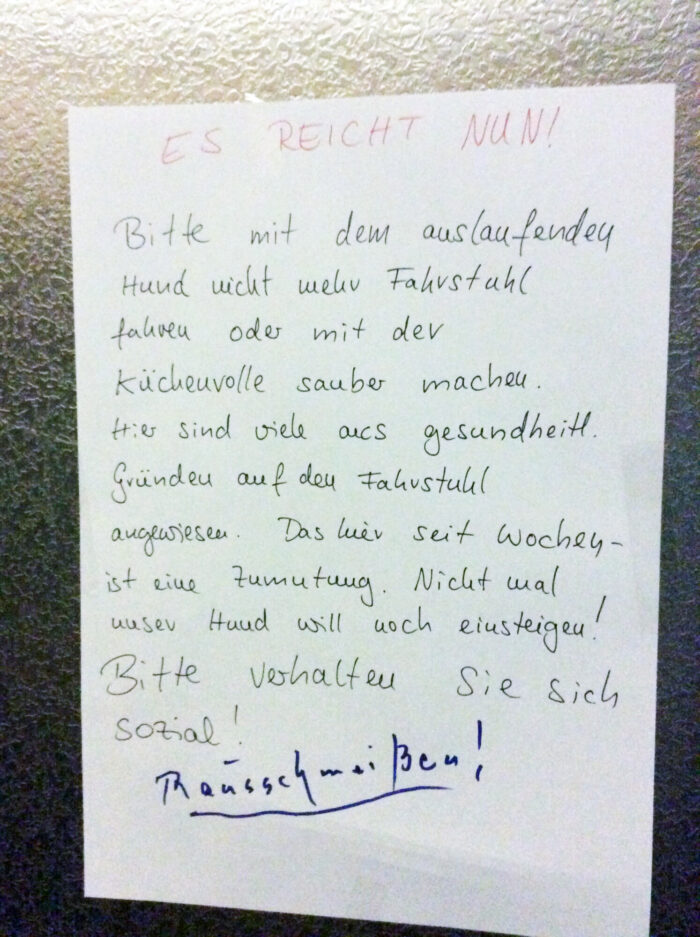 ES REICHT NUN!
Bitte mit dem auslaufenden
Hund nicht mehr Fahrstuhl
fahren oder mit der
Küchenrolle sauber machen.
Hier sind viele aus gesundheitl.
Gründen auf den Fahrstuhl
angewiesen. Das hier seit Wochen-
ist eine Zumutung. Nicht mal
unser Hund will noch einsteigen!
Bitte verhalten Sie sich
sozial!
Rausschmeißen!